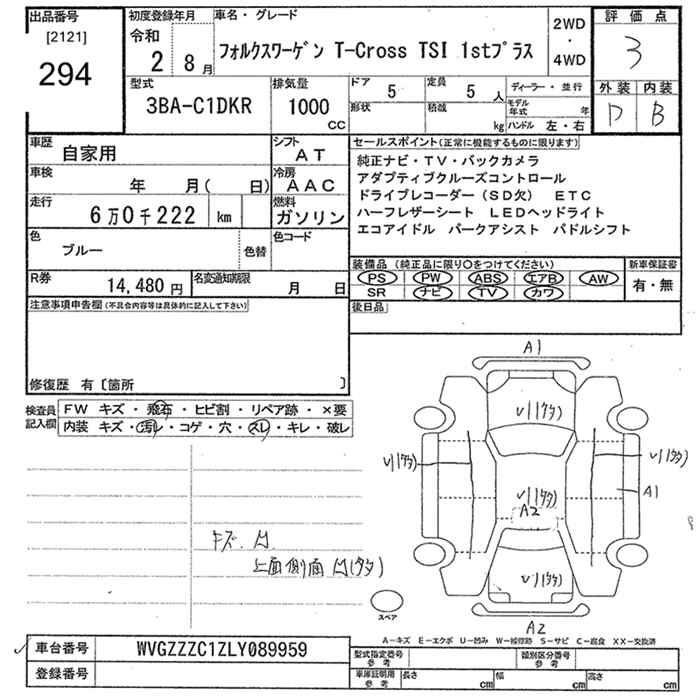 出品番号
[2121]
294
初度登録年月
令和
2 8月
車名・グレード
フォルクスワーゲン T-Cross TSI 1stプラス
2WD
・
4WD
評価点
3
外装 内装
D B
型式
3BA-C1DKR
排気量
1000
CC
ドア
5
定員
5 人
形状
積載
kg
ディーラー・並行
モデル年式 年
ハンドル 左・右
車歴
自家用
シフト
AT
車検
年 月( 日)
冷房
AAC
走行
6万0千222 km
燃料
ガソリン
色
ブルー
色替
色コード
R券
14,480円
名変通知期限
月 日
セールスポイント(正常に機能するものに限ります)
純正ナビ・TV・バックカメラ
アダプティブクルーズコントロール
ドライブレコーダー(SD欠) ETC
ハーフレザーシート LEDヘッドライト
エコアイドル パークアシスト パドルシフト
装備品 (純正品に限り○をつけてください)
PS PW ABS エアB AW
SR ナビ TV カワ
新車保証書
有・無
後日品
注意事項申告欄(不具合内容等は具体的に記入して下さい)
修復歴 有〔箇所 〕
検査員記入欄
FW キズ・飛石・ヒビ割・リペア跡・×要
内装 キズ・汚レ・コゲ・穴・スレ・キレ・破レ
キズ.凹
上面側面凹(多タ)
A1
U1(多タ)
U1(多タ)
U1(多タ)
U1(多タ)
A2
A1
U1(多タ)
A2
スペア
A−キズ E−エクボ U−凹み W−補修跡 S−サビ C−腐食 XX−交換済
車台番号
WVGZZZC1ZLY089959
登録番号
型式指定番号
参考
類別区分番号
参考
車庫証明用
参考
長さ cm
幅 cm
高さ cm